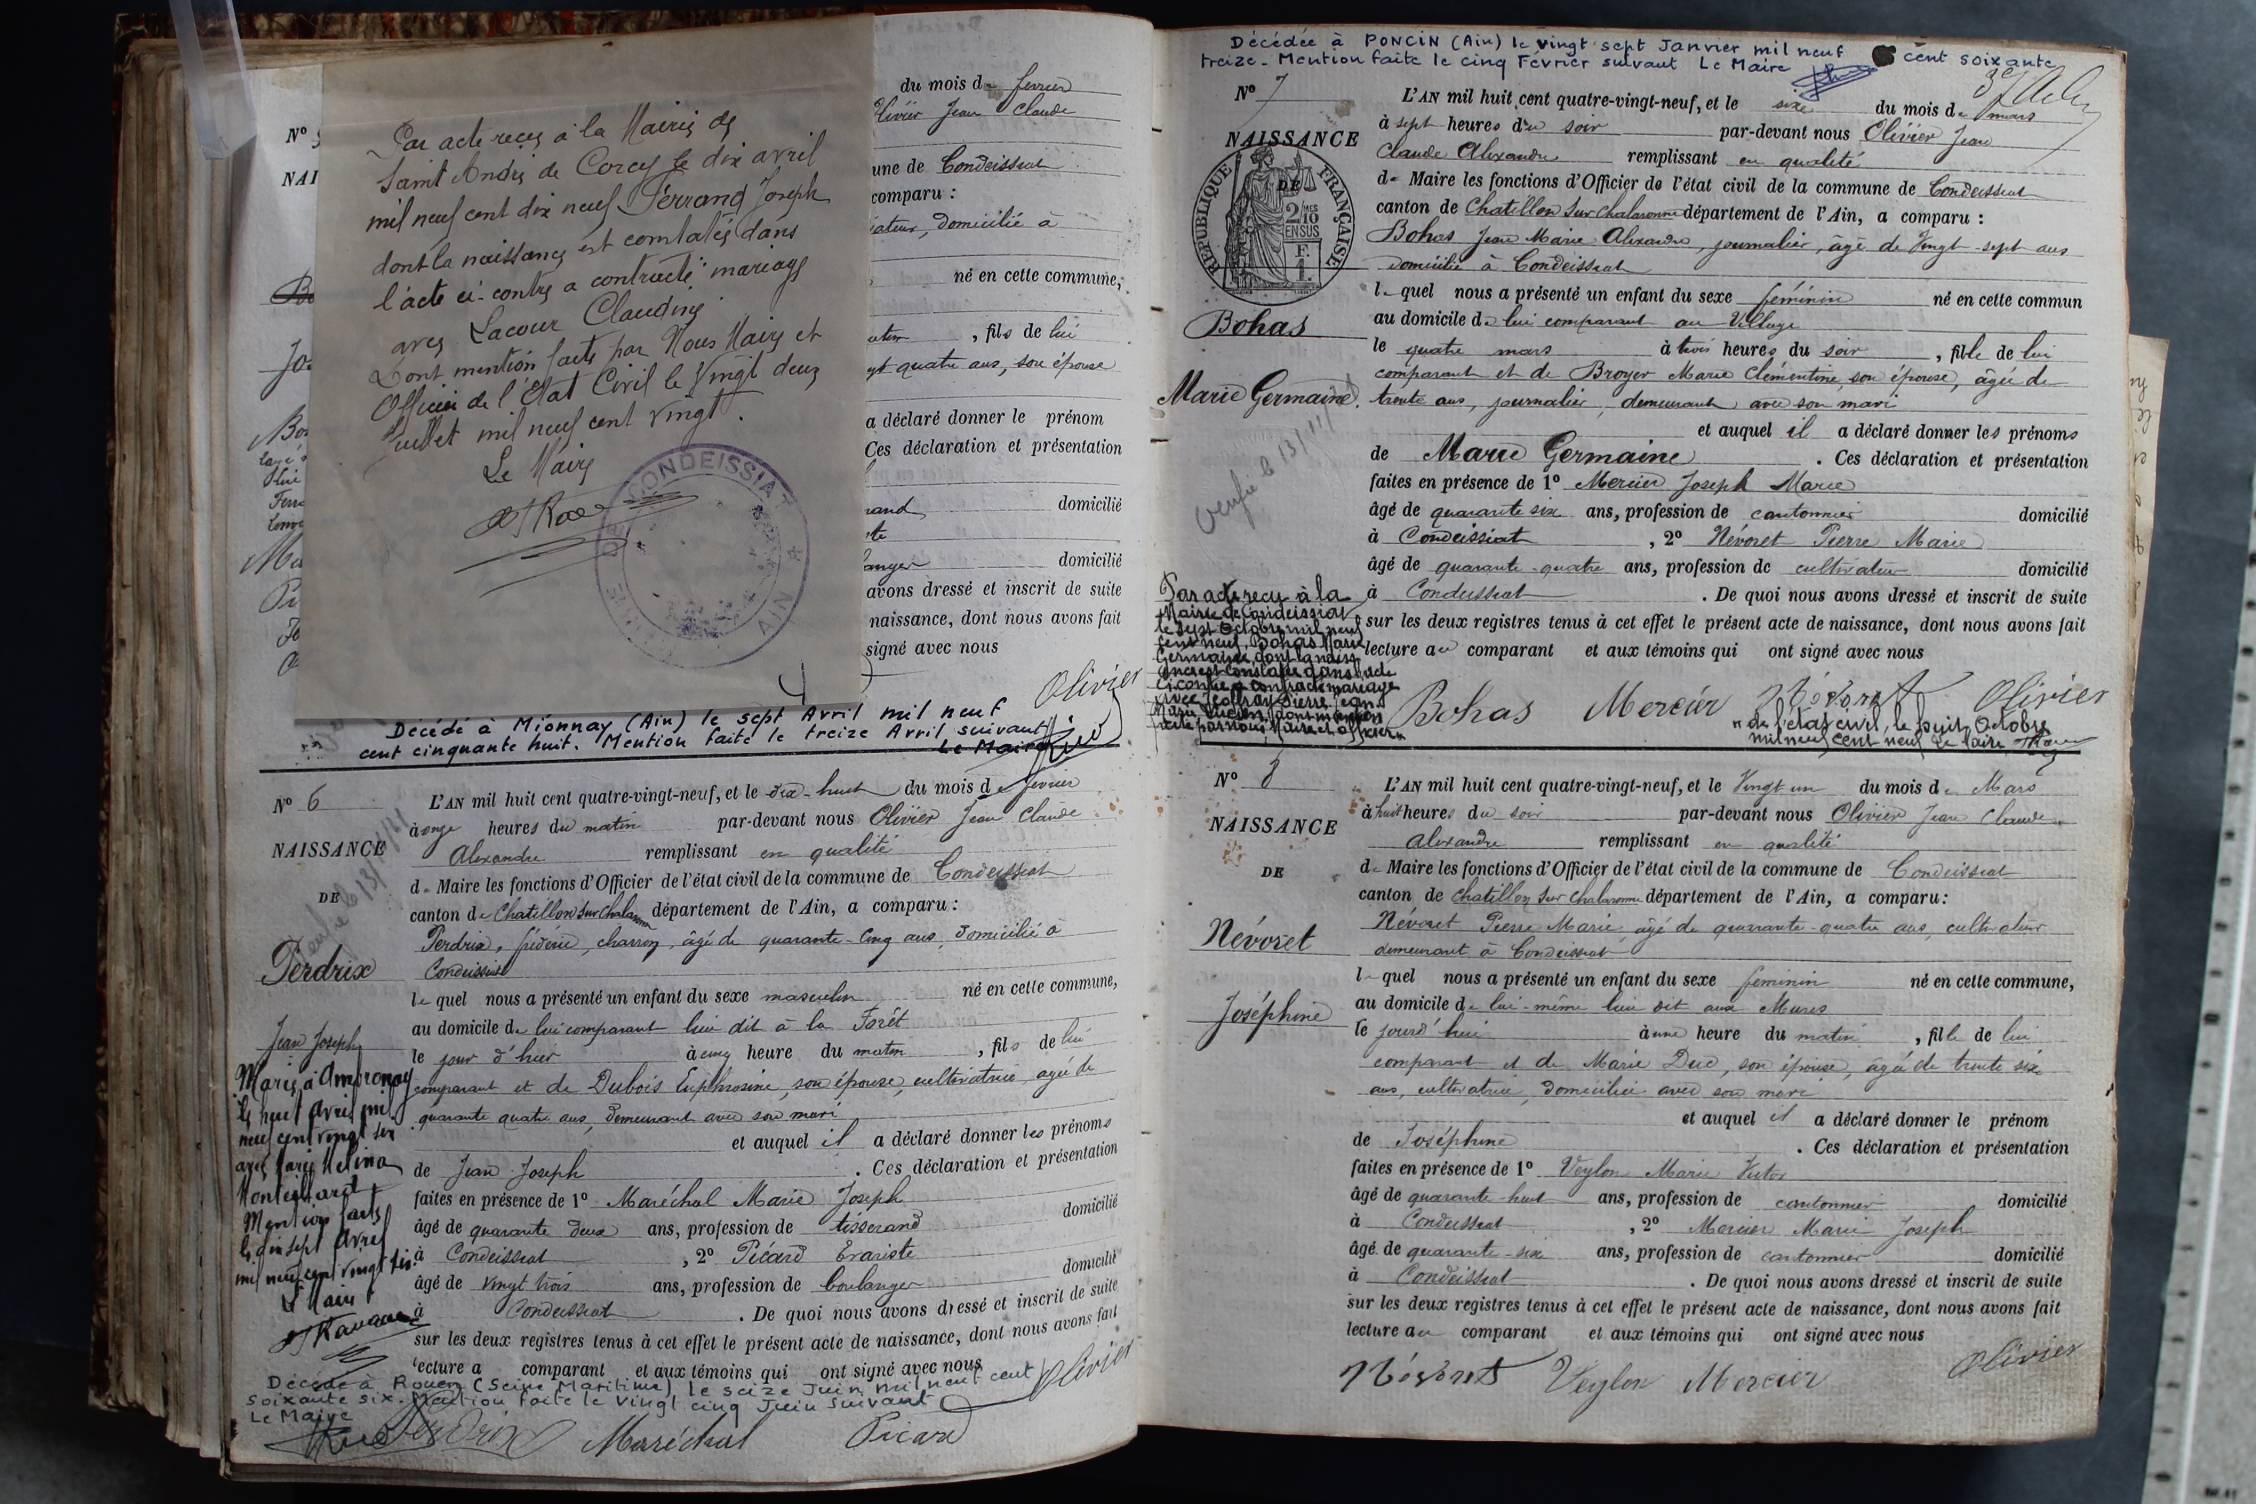 Par acte reçu à la Mairie de
Saint André de Corcy le dix avril
mil neuf cent dix neuf Ferrand Joseph
dont la naissance est constatée dans
l'acte ci-contre a contracté mariage
avec Lacour Claudine
Dont mention faite par Nous Maire et
Officier de l'Etat Civil le Vingt deux
Juillet mil neuf cent vingt.
Le Maire
CONDEISSIAT
AIN
Nº
NAI
du mois de fevrier
Olivier Jean Claude
une de Condeissiat
comparu :
domicilié à
né en cette commune,
, fils de lui
quatre ans, son épouse
a déclaré donner le prénom
Ces déclaration et présentation
domicilié
domicilié
avons dressé et inscrit de suite
naissance, dont nous avons fait
signé avec nous
Olivier
Décédé à Mionnay (Ain) le sept Avril mil neuf
cent cinquante huit. Mention faite le treize Avril suivant
Le Maire
Nº 6
NAISSANCE
DE
Perdrix
Jean Joseph
Marié à Ambronay
le huit Avril mil
neuf cent vingt six
avec Marie Melina
Mention faite
le dix sept Avril
mil neuf cent vingt six
Le Maire
L'AN mil huit cent quatre-vingt-neuf, et le dix-huit du mois de fevrier
à onze heures du matin par-devant nous Olivier Jean Claude
Alexandre remplissant en qualité
de Maire les fonctions d'Officier de l'état civil de la commune de Condeissiat
canton de Chatillon sur Chalaronne département de l'Ain, a comparu :
Perdrix, fréderic, charron, âgé de quarante-cinq ans, domicilié à
Condeissiat
lequel nous a présenté un enfant du sexe masculin né en cette commune,
au domicile de lui comparant lieu dit à la Forêt
le jour d'hier à cinq heure du matin, fils de lui
comparant et de Dubois Euphrosine, son épouse, cultivatrice, agée de
quarante quatre ans, demeurant avec son mari
et auquel il a déclaré donner les prénoms
de Jean Joseph. Ces déclaration et présentation
faites en présence de 1º Maréchal Marie Joseph
âgé de quarante deux ans, profession de tisserand domicilié
à Condeissiat, 2º Picard Evariste
âgé de vingt trois ans, profession de boulanger domicilié
à Condeissiat. De quoi nous avons dressé et inscrit de suite
sur les deux registres tenus à cet effet le présent acte de naissance, dont nous avons fait
lecture a comparant et aux témoins qui ont signé avec nous
Décédé à Rouen (Seine Maritime) le seize Juin mil neuf cent
soixante six. Mention faite le vingt cinq Juin suivant
Le Maire
Perdrix Maréchal Picard Olivier
Décédée à PONCIN (Ain) le vingt sept Janvier mil neuf cent soixante
treize. Mention faite le cinq Février suivant Le Maire
Nº 7
NAISSANCE
DE
RÉPUBLIQUE FRANÇAISE
2/10 MES
EN SUS
F.
1.
Bohas
Marie Germaine
Vérifié le 13/11/
L'AN mil huit cent quatre-vingt-neuf, et le six du mois de mars
à sept heures du soir par-devant nous Olivier Jean
Claude Alexandre remplissant en qualité
de Maire les fonctions d'Officier de l'état civil de la commune de Condeissiat
canton de Chatillon sur Chalaronne département de l'Ain, a comparu :
Bohas Jean Marie Alexandre, journalier, âgé de Vingt-sept ans
domicilié à Condeissiat
lequel nous a présenté un enfant du sexe féminin né en cette commun
au domicile de lui comparant au Village
le quatre mars à trois heures du soir, fille de lui
comparant et de Broyer Marie Clémentine, son épouse, âgée de
trente ans, journalier, demeurant avec son mari
et auquel il a déclaré donner les prénoms
de Marie Germaine. Ces déclaration et présentation
faites en présence de 1º Mercier Joseph Marie
âgé de quarante six ans, profession de cantonnier domicilié
à Condeissiat, 2º Névoret Pierre Marie
âgé de quarante-quatre ans, profession de cultivateur domicilié
à Condeissiat. De quoi nous avons dressé et inscrit de suite
sur les deux registres tenus à cet effet le présent acte de naissance, dont nous avons fait
lecture au comparant et aux témoins qui ont signé avec nous
Par acte reçu à la
Mairie de Condeissiat
le sept Octobre mil neuf
cent neuf, Bohas Marie
Germaine, dont la naiss
ance est constatée dans l'acte
ci-contre a contracté mariage
avec Joffray Pierre Jean
Marie Lucien, dont mention
faite par nous, Maire et officier
de l'état civil, le huit Octobre
mil neuf cent neuf Le Maire
Bohas Mercier Névoret Olivier
Nº 8
NAISSANCE
DE
Névoret
Joséphine
L'AN mil huit cent quatre-vingt-neuf, et le Vingt un du mois de Mars
à huit heures du soir par-devant nous Olivier Jean Claude
Alexandre remplissant en qualité
de Maire les fonctions d'Officier de l'état civil de la commune de Condeissiat
canton de Chatillon sur Chalaronne département de l'Ain, a comparu :
Névoret Pierre Marie, âgé de quarante-quatre ans, cultivateur
demeurant à Condeissiat
lequel nous a présenté un enfant du sexe feminin né en cette commune,
au domicile de lui-même lieu dit aux Mures
le jourd'hui à une heure du matin, fille de lui
comparant et de Marie Duc, son épouse, agée de trente six
ans, cultivatrice, domiciliée avec son mari
et auquel il a déclaré donner le prénom
de Joséphine. Ces déclaration et présentation
faites en présence de 1º Veylon Marie Victor
âgé de quarante-huit ans, profession de cantonnier domicilié
à Condeissiat, 2º Mercier Marie Joseph
âgé de quarante-six ans, profession de cantonnier domicilié
à Condeissiat. De quoi nous avons dressé et inscrit de suite
sur les deux registres tenus à cet effet le présent acte de naissance, dont nous avons fait
lecture au comparant et aux témoins qui ont signé avec nous
Névoret Veylon Mercier Olivier